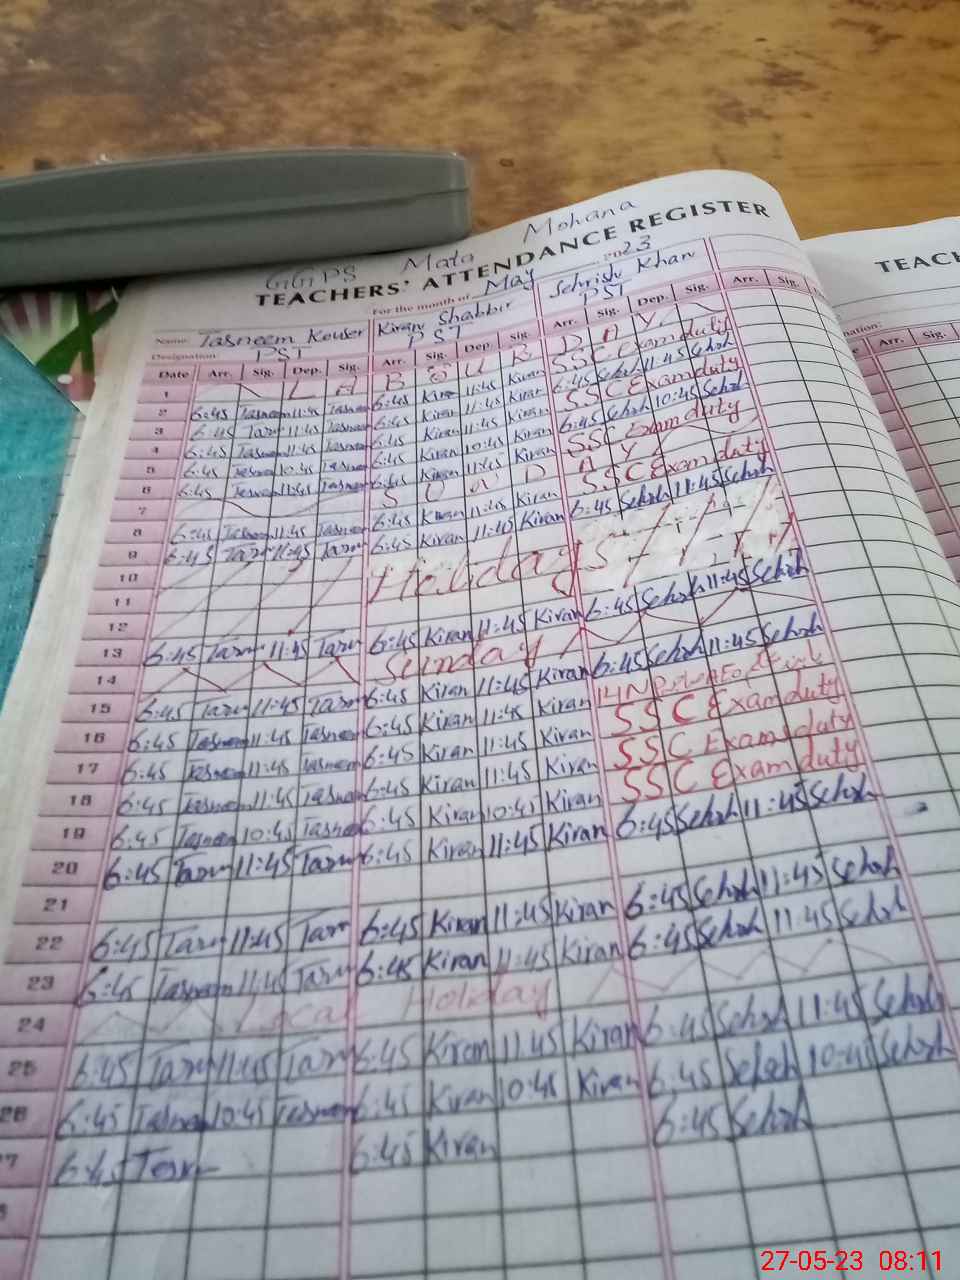 GGPS Mata Mohana
TEACHERS' ATTENDANCE REGISTER
TEACH
For the month of May 2023
Name: Tasneem Kouser Kiran Shabbir Sehrish Khan
Designation: PST PST PST
Date Arr. Sig. Dep. Sig. Arr. Sig. Dep. Sig. Arr. Sig. Dep. Sig. Arr. Sig.
Arr. Sig.
1 L A B O U R D A Y
2 6:45 Tasneem 11:45 Tasneem 6:45 Kiran 11:45 Kiran SSC Exam duty
3 6:45 Tasn 11:45 Tasneem 6:45 Kiran 11:45 Kiran 6:45 Sehrh 11:45 Sehrh
4 6:45 Tasneem 11:45 Tasneem 6:45 Kiran 11:45 Kiran SSC Exam duty
5 6:45 Tasneem 10:45 Tasneem 6:45 Kiran 10:45 Kiran 6:45 Sehrh 10:45 Sehrh
6 6:45 Tasneem 11:45 Tasneem 6:45 Kiran 11:45 Kiran SSC Exam duty
7 S U N D A Y
8 6:45 Tasneem 11:45 Tasneem 6:45 Kiran 11:45 Kiran SSC Exam duty
9 6:45 Tasn 11:45 Tasn 6:45 Kiran 11:45 Kiran 6:45 Sehrh 11:45 Sehrh
10 Holidays
11
12
13 6:45 Tasn 11:45 Tasn 6:45 Kiran 11:45 Kiran 6:45 Sehrh 11:45 Sehrh
14 Sunday
15 6:45 Tasn 11:45 Tasn 6:45 Kiran 11:45 Kiran 6:45 Sehrh 11:45 Sehrh
16 6:45 Tasneem 11:45 Tasneem 6:45 Kiran 11:45 Kiran
17 6:45 Tasneem 11:45 Tasneem 6:45 Kiran 11:45 Kiran SSC Exam duty
18 6:45 Tasneem 11:45 Tasneem 6:45 Kiran 11:45 Kiran SSC Exam duty
19 6:45 Tasneem 10:45 Tasneem 6:45 Kiran 10:45 Kiran SSC Exam duty
20 6:45 Tasn 11:45 Tasn 6:45 Kiran 11:45 Kiran 6:45 Sehrh 11:45 Sehrh
21
22 6:45 Tasn 11:45 Tasn 6:45 Kiran 11:45 Kiran 6:45 Sehrh 11:45 Sehrh
23 6:45 Tasneem 11:45 Tasn 6:45 Kiran 11:45 Kiran 6:45 Sehrh 11:45 Sehrh
24 Local Holiday
25 6:45 Tasn 11:45 Tasn 6:45 Kiran 11:45 Kiran 6:45 Sehrh 11:45 Sehrh
26 6:45 Tasneem 10:45 Tasneem 6:45 Kiran 10:45 Kiran 6:45 Sehrh 10:45 Sehrh
7 6:45 Tasn 6:45 Kiran 6:45 Sehrh
27-05-23 08:11